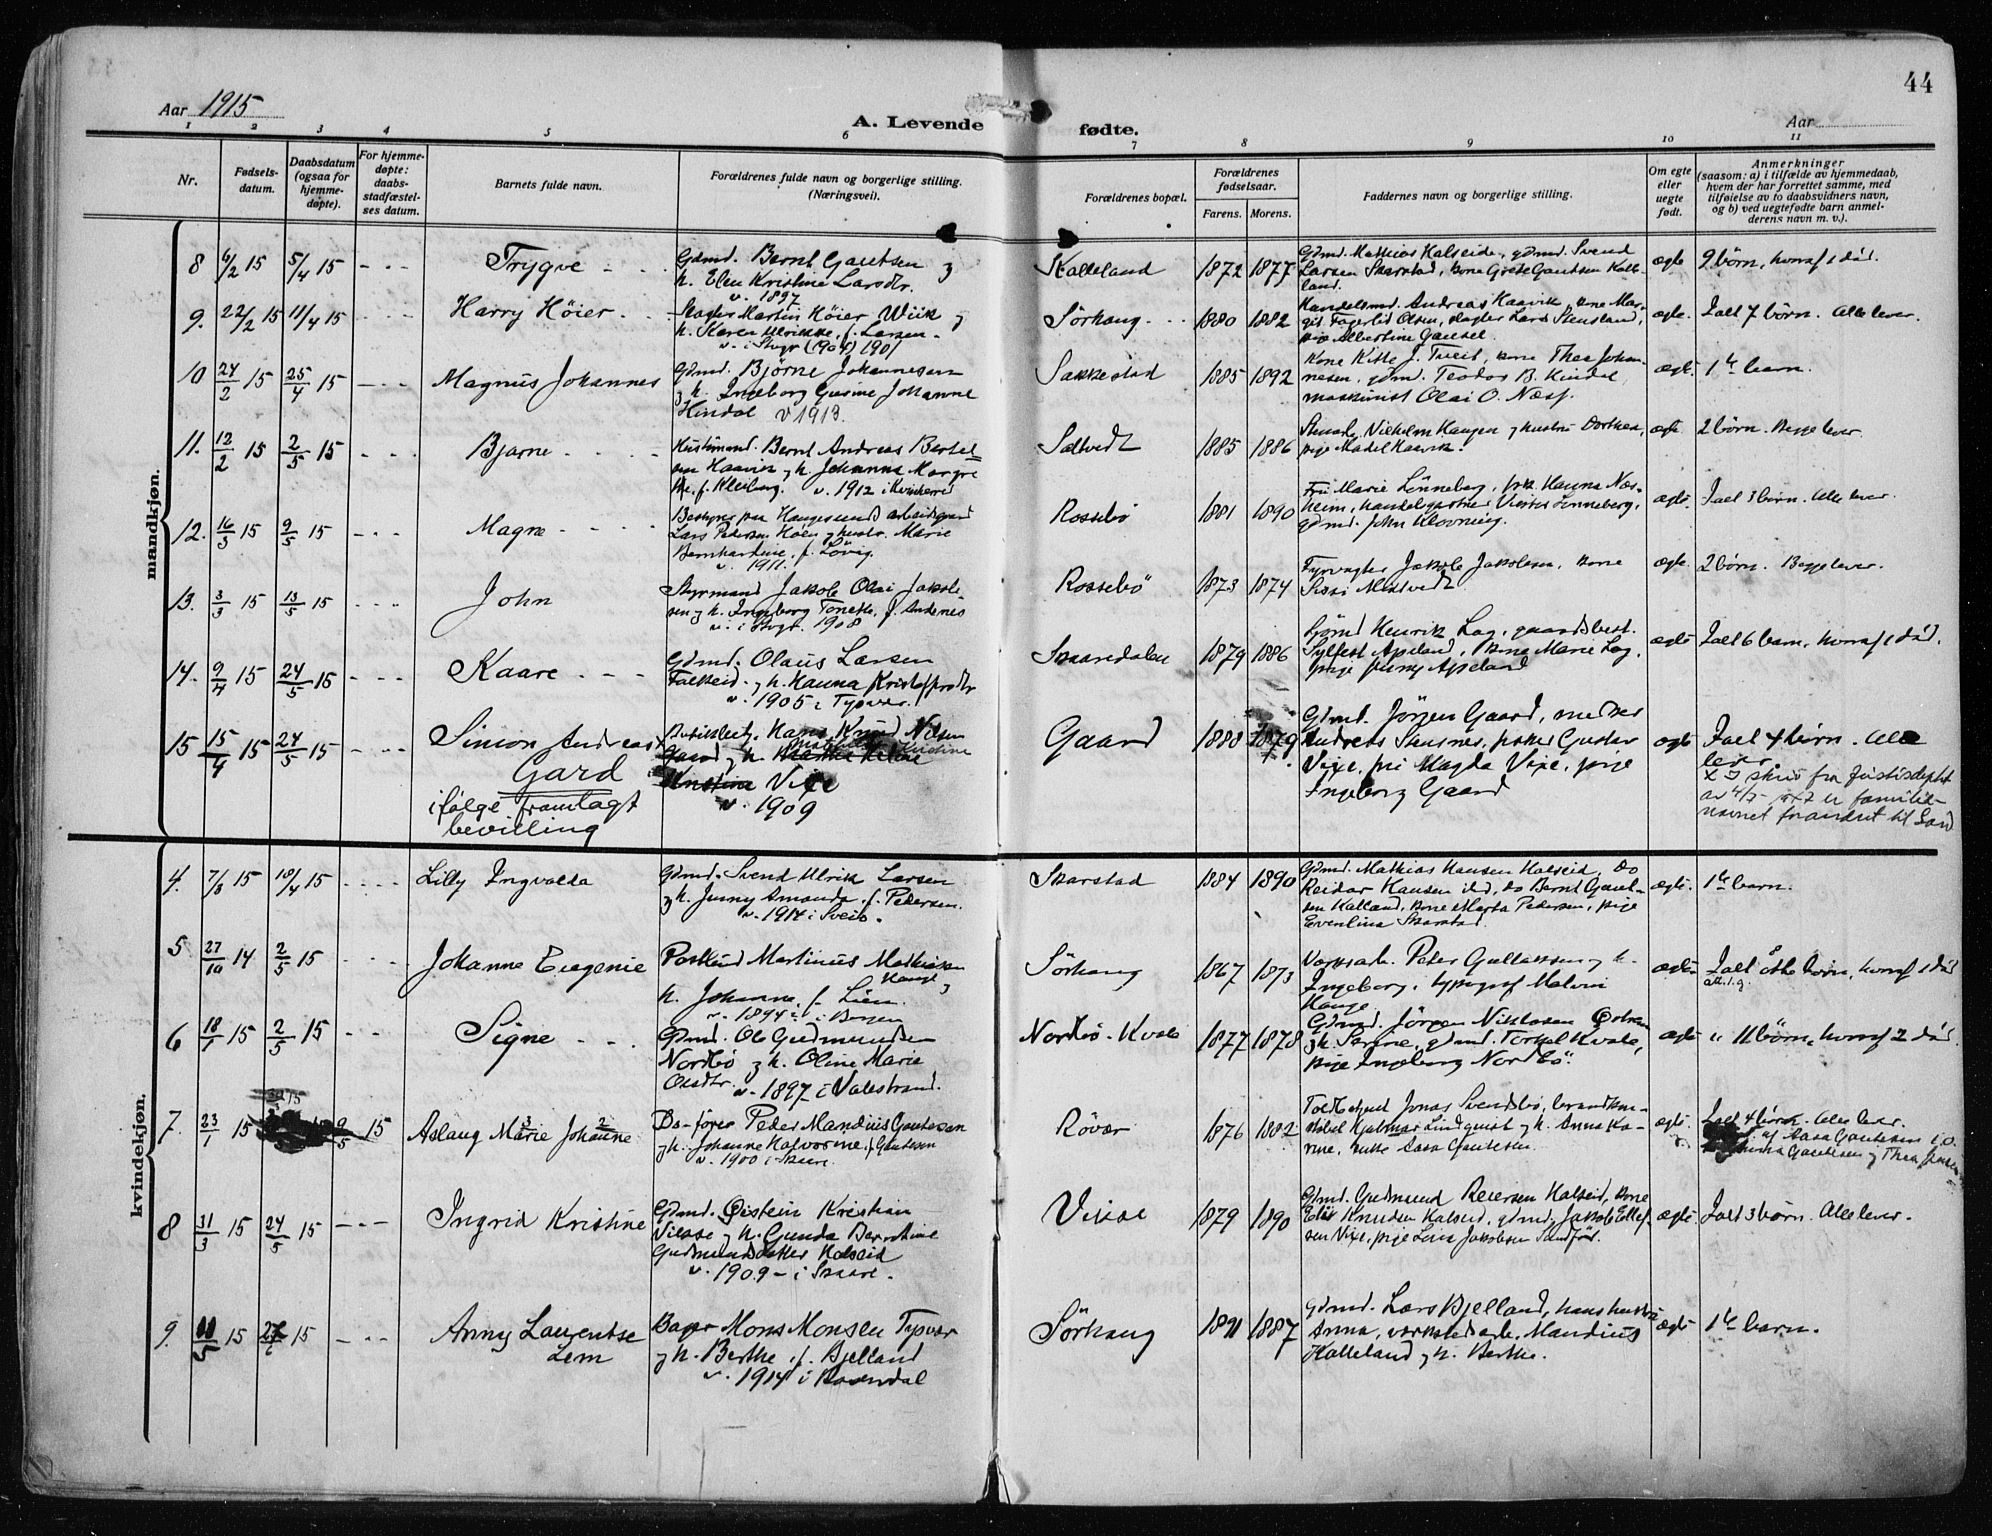 44
Aar 1915
A. Levende fødte.
Aar
1 2 3 4 5 6 7 8 9 10 11
Nr.
Fødsels-
datum.
Daabsdatum
(ogsaa for
hjemme-
døpte).
For hjemme-
døpte:
daabs-
stadfæstel-
ses datum.
Barnets fulde navn.
Forældrenes fulde navn og borgerlige stilling.
(Næringsvei).
Forældrenes bopæl.
Forældrenes
fødselsaar.
Farens. Morens.
Faddernes navn og borgerlige stilling.
Om egte
eller
uegte
født.
Anmerkninger
(saasom: a) i tilfælde av hjemmedaab,
hvem der har forrettet samme, med
tilføielse av to daabsvidners navn,
og b) ved uegtefødte barn anmel-
derens navn m. v.).
mandkjøn.
8 6/2 15 5/4 15 Trygve
Gdmd. Bernt Gautsen og
h. Elen Kristine Larsdtr.
v. 1897
Kalleland 1872 1877
Gdmd. Mathias Halseide, gdmd. Svend
Larsen Skarstad, kone Grete Gautsen Kalle-
land.
egte 9 børn, horaf 1 død.
9. 22/2 15 11/4 15 Harry Høier
Martin Høier Wiik og
h. Karen Ulrikke, f. Larsen
1901
Sørhaug 1880 1882
Handelsmd. Andreas Haavik, kone Mar-
git Fagerlid Olsen, slagter Lars Stensland,
pige Albertine Gausel
egte. Ialt 7 børn. Alle lever.
10 24/2 15 25/4 15 Magnus Johannes
Gdmd. Bjorne Johannesen
og h. Ingeborg Gurine Johanne
Hindal v 1913.
Sakkestad 1885 1892
kone Kitte J. Tveit, kone Thea Johan-
nesen, gdmd. Teodor B. Hindal,
maskinist Olai O. Næss.
egte. 1ste barn.
11. 12/2 15 2/5 15 Bjarne
Bernt Andreas Bertel-
sen Haavik og h. Johanna Margre-
the, f. Kleiberg. v. 1912 i Kvinherred
Saltvedt 1885 1886
Vilhelm Haugen og hustru Dorthea,
pige Madel Haavik.
egte. 2 børn. Begge lever.
12. 16/3 15 9/5 15 Magne
Bestyrer paa Haugesund arbeidsgaard
Lars Pedersen Høen og hustr. Marie
Bernhardine, f. Løvig.
v. 1911.
Rossebø 1881 1890
Fru Marie Lønneberg, frk. Hanna Næs-
heim, handelsgartner Viktor Lønneberg,
gdmd. John Kloyning.
egte. Ialt 3 børn. Alle lever.
13. 3/3 15 13/5 15 John
Styrmand Jakob Olai Jakob-
sen og h. Ingeborg Tonette, f. Andenes
v. i Skgr. 1908
Rossebö 1873 1874
Fyrvogter Jakob Jakobsen, kone
Sissi Mistvedt
egte. 2 børn. Begge lever.
14. 9/4 15 24/5 15 Kaare
Gdmd. Olaus Larsen
Falkeid og h. Hanna Kristoffersdtr
v. 1905 i Tysvær.
Skaaredalen 1879 1886
Henrik Lag, gaardsbest.
Sylfest Apeland, kone Marie Lag,
pige Jenny Apeland
egte Ialt 6 barn, horaf 1 død.
15 15/4 15 24/5 15 Simon Andreas
Gard
ifølge framlagt
bevilling
Hans Knud Nilsen
Gaard og h. Kristine
Vixe
v. 1909
Gaard 1888 1879
Gdmd. Jörgen Gaard,
Andreas Stensnes, Gustav
Vixe, Magda Vixe, pige
Ingeborg Gaard
egte Ialt 4 børn. Alle
lever.
x I skriv fra Justisdeptet
av 4/7 er familie-
navnet forandret til Gard
kvindekjøn.
4. 7/3 15 18/4 15 Lilly Ingvalda
Gdmd. Svend Ulrik Larsen
og h. Jenny Amanda, f. Pedersen.
v. 1914 i Sveio.
Skarstad 1884 1890
Gdmd. Mathias Hansen Halseid, Do
Reidar Hansen ibd, do Bernt Gaut-
sen Kalland, kone Marta Pedersen, pige
Evenlina Skarstad.
egte. 1ste barn.
5 27/10 14 2/5 15 Johanne Eugenie
Postbud Martinus Mathiasen
Hauge og
h. Johanne, f. Lien.
v. 1894 i Bergen
Sørhaug 1867 1873
Verksarb. Peter Gullaksen og h.
Ingeborg, typograf Halvin
Hauge
egte Ialt otte børn, horaf 1 død
6 18/1 15 2/5 15 Signe
Gdmd. Ole Gudmundsen
Nordbø og h. Oline Marie
Olsdtr. v. 1897 i Valestrand.
Nordbø - Kvale 1877 1878
Gdmd. Jørgen Niklasen
og h. Serine, gdmd. Torkel Kvale,
pige Ingeborg Nordbö.
egte " 11 børn, horaf 2 død.
7. 23/1 15 9/5 15 Aslaug Marie Johanne
Peder Mandius Gautesen
og h. Johanne Halvorine, f. Gautesen
v. 1900 i Skaare.
Røvær 1876 1882
Toldbetjent Jonas Svendsbø,
Hjalmar Lindquist og h. Anna Ka-
rine, enke Aasa Gautesen.
egte. Ialt 4 børn. Alle lever.
af Aasa Gautesen
Gautesen og Thea
8 31/3 15 24/5 15 Ingrid Kristine
Gdmd. Øistein Kristian
og h. Gunda Berntine
Gudmundsdatter Halseid
v. 1909 - i Skaare.
Vikse 1879 1890
Gdmd. Gudmund Reiersen Halseid, kone
Knudsen Halseid, gdmd. Jakob Ellef-
sen Vixe, pige Lina Jakobsen
egte Ialt 3 børn. Alle lever.
9. 11/5 15 15 Anny Laurentse
Lem
Bager Mons Monsen Tysvær
og h. Berthe, f. Bjelland
v. 1914 i Rosendal
Sørhaug 1891 1887
Gdmd. Lars Bjelland, hans hustru
Anna, verkstedsarb. Mandius
Kalleland og h. Berthe.
egte 1ste barn.